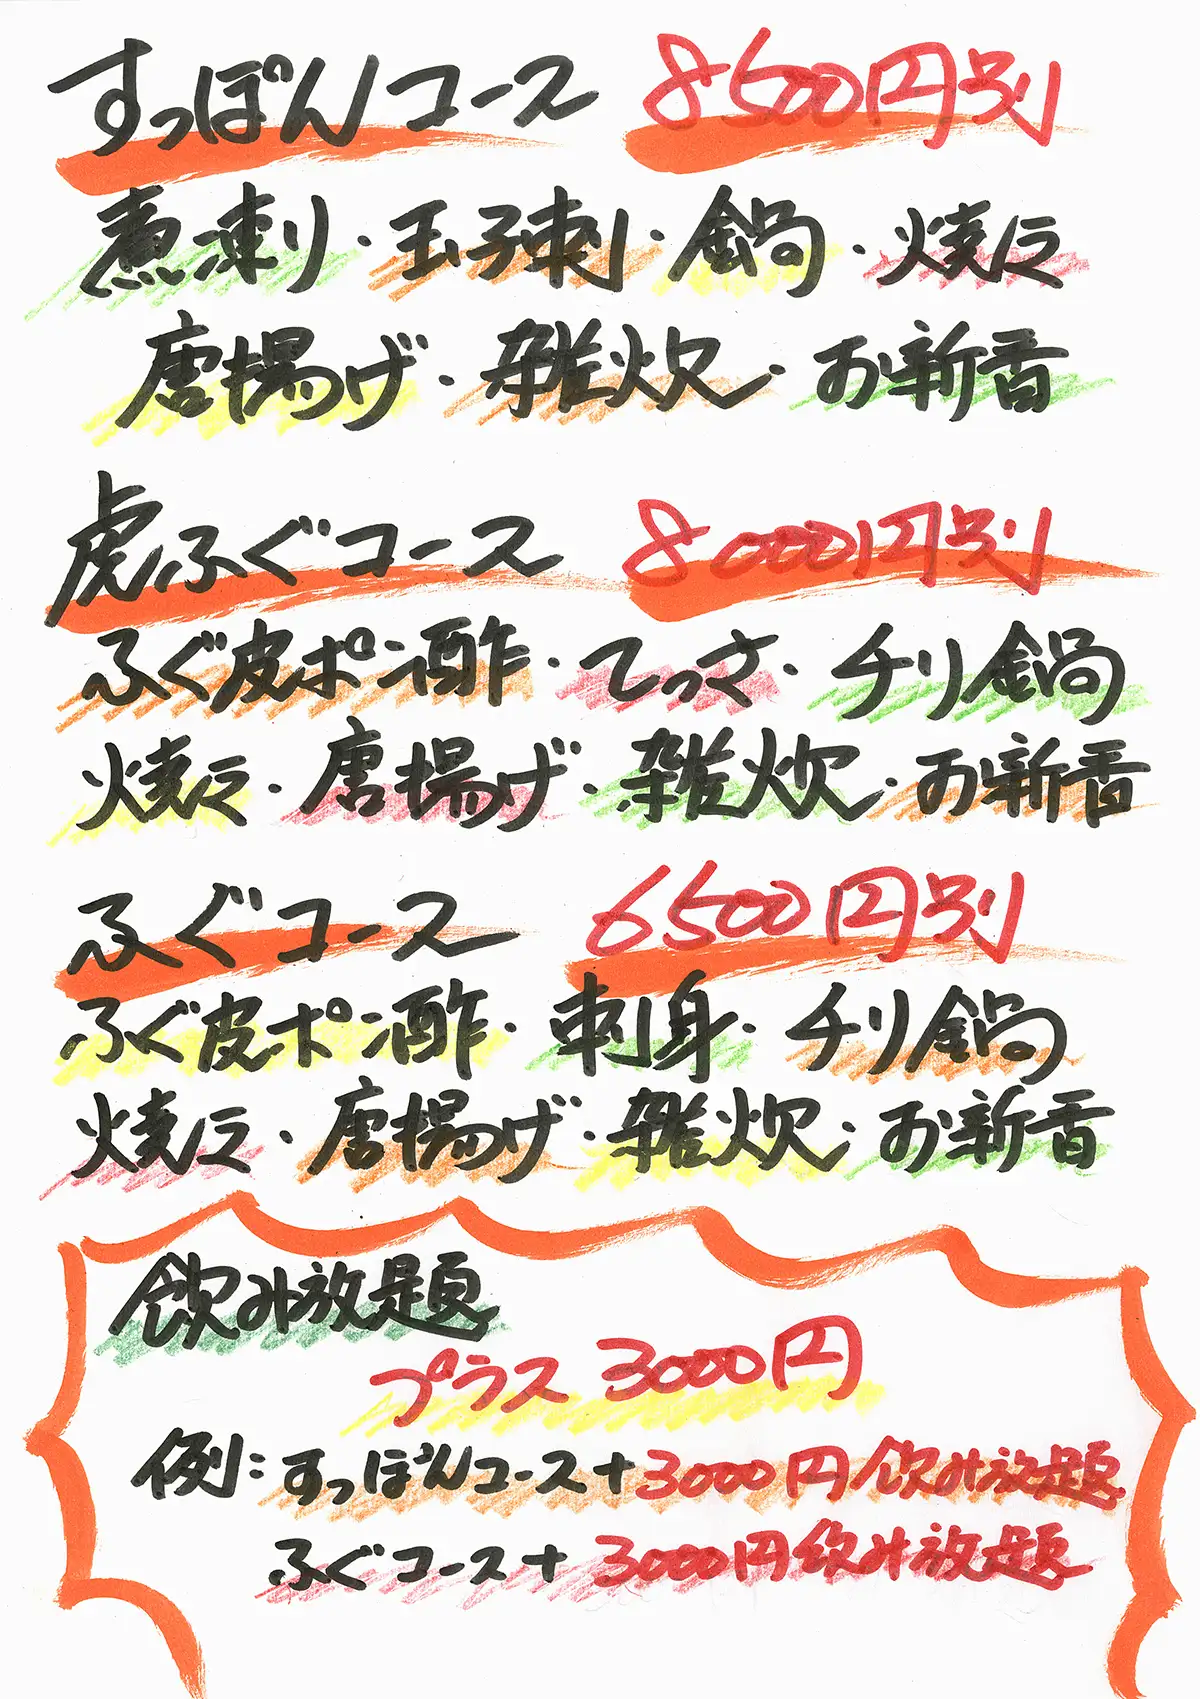 すっぽんコース 8500円別
煮凍り・玉子刺・鍋・焼き
唐揚げ・雑炊・お新香
虎ふぐコース 8000円別
ふぐ皮ポン酢・てっさ・チリ鍋
焼き・唐揚げ・雑炊・お新香
ふぐコース 6500円別
ふぐ皮ポン酢・刺身・チリ鍋
焼き・唐揚げ・雑炊・お新香
飲み放題
プラス 3000円
例:すっぽんコース+3000円飲み放題
ふぐコース+3000円飲み放題